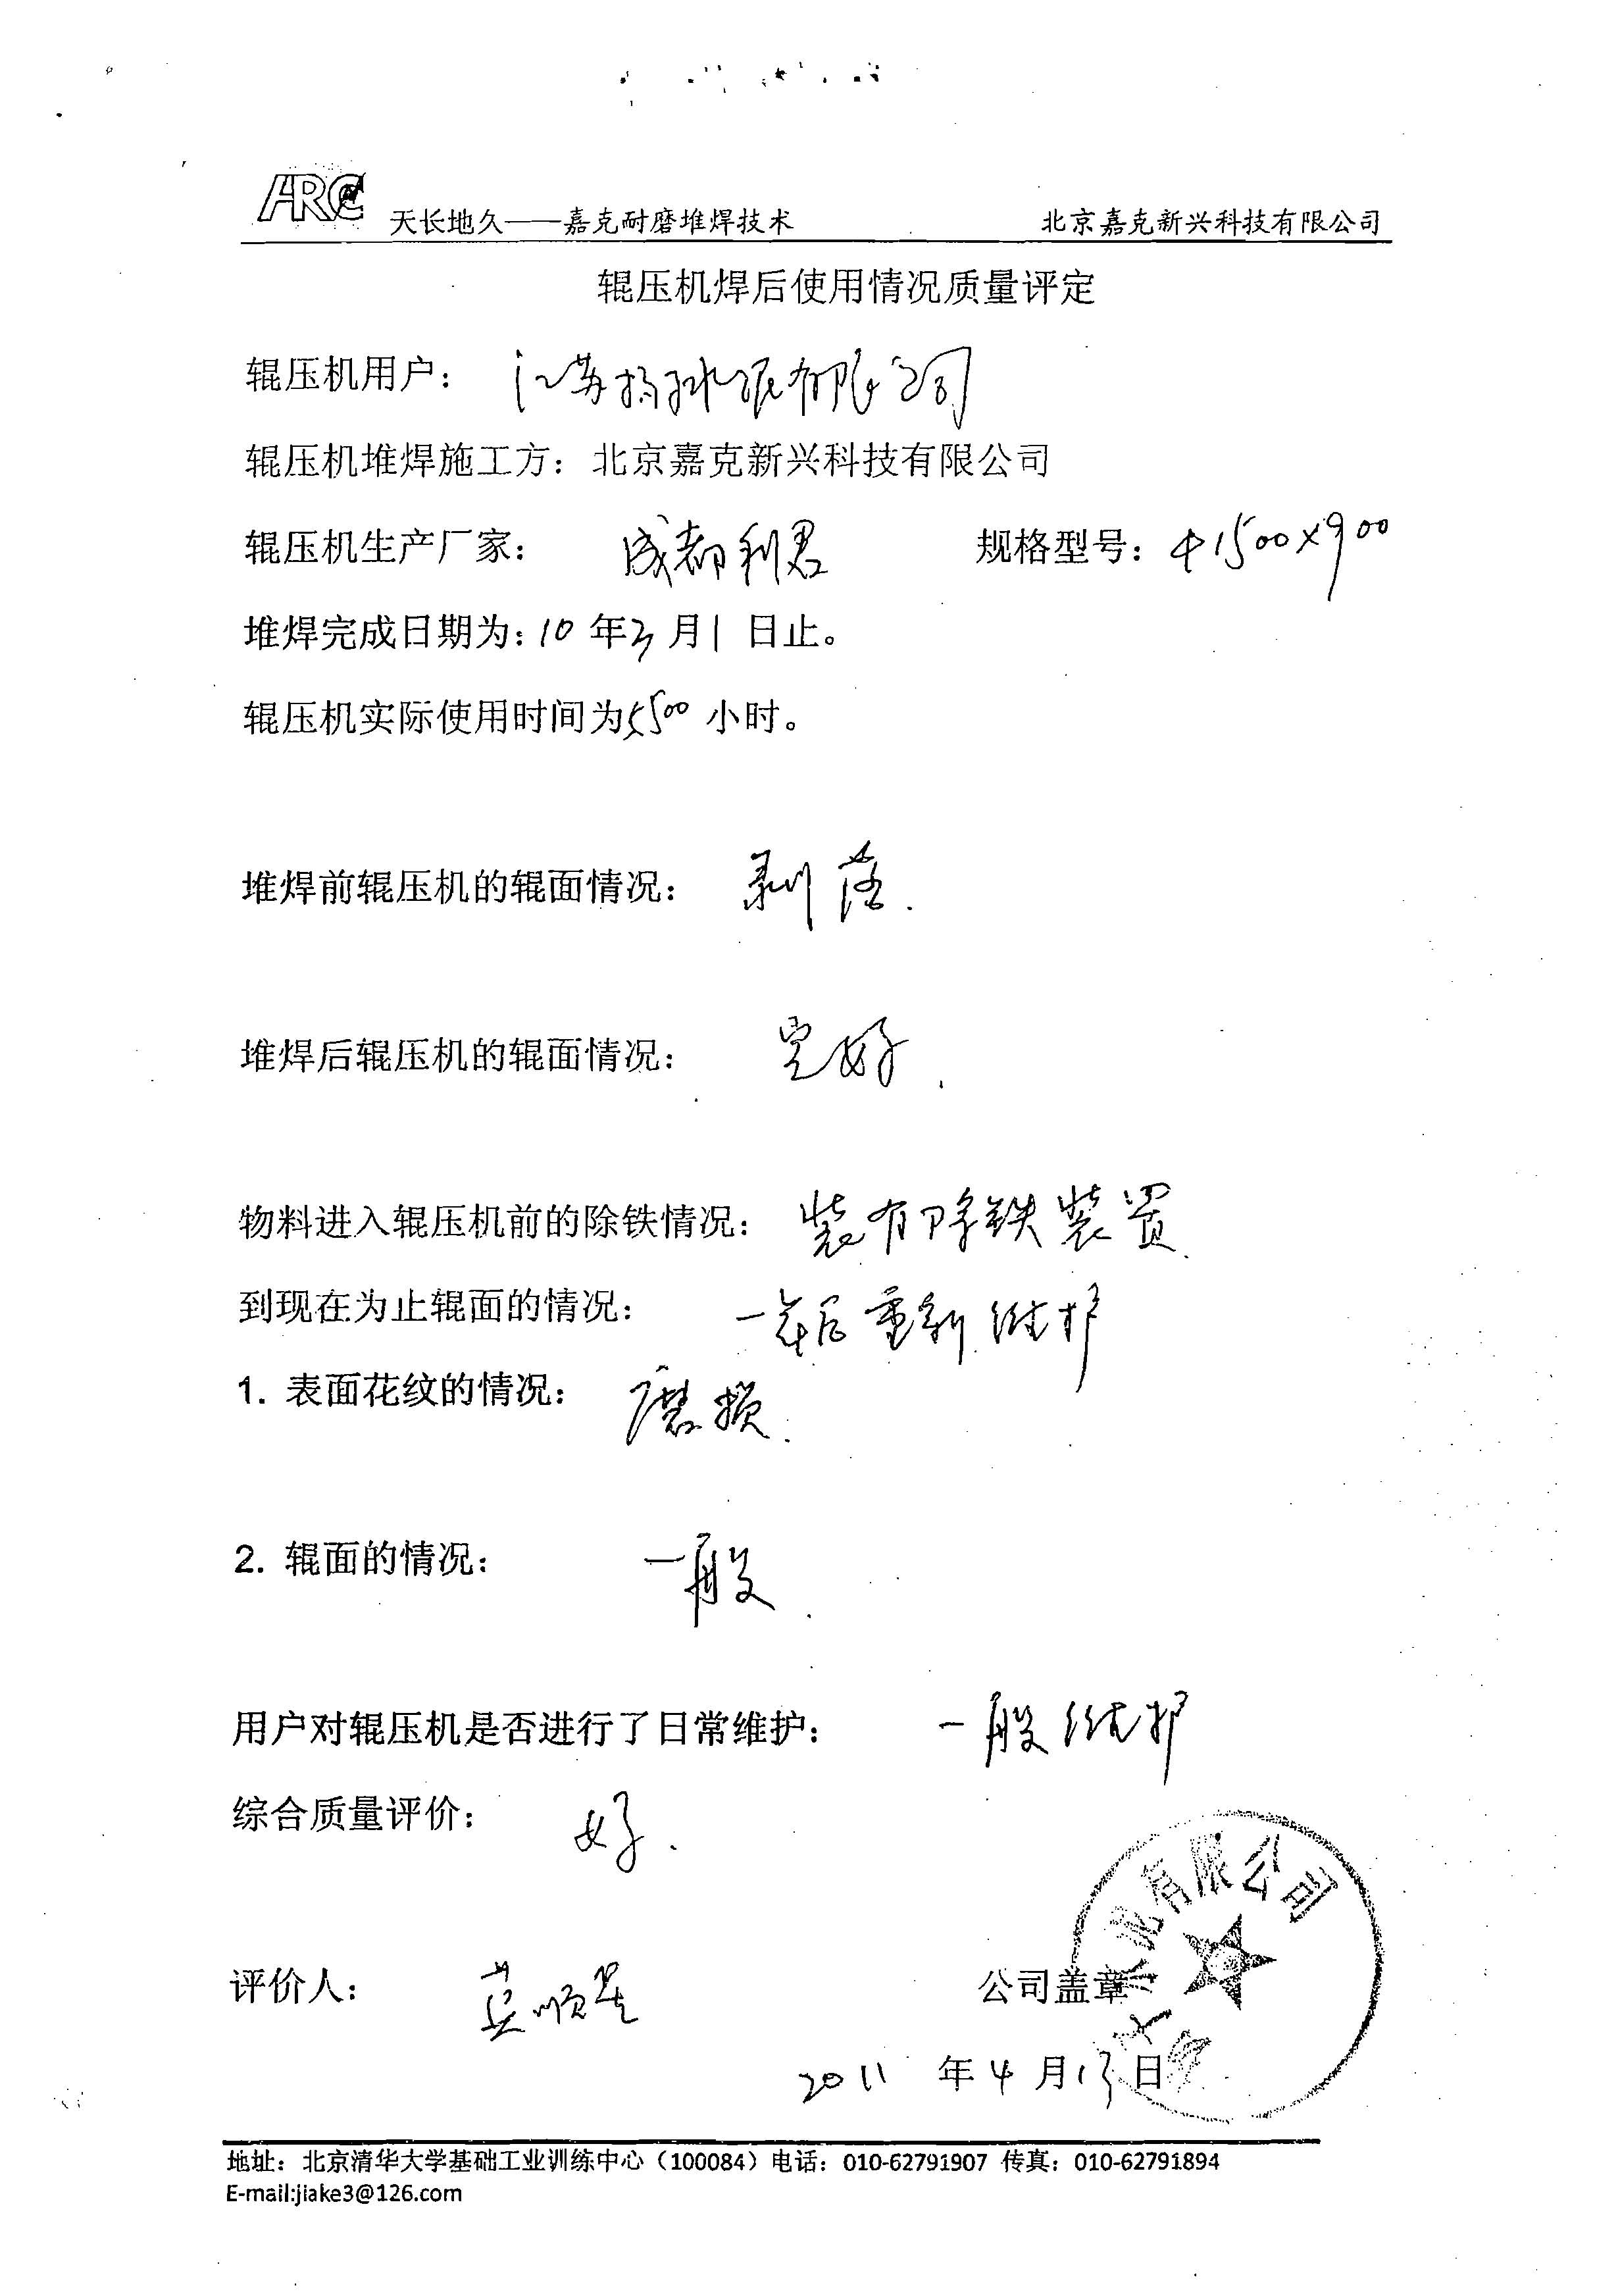 ARC 天长地久——嘉克耐磨堆焊技术 北京嘉克新兴科技有限公司
辊压机焊后使用情况质量评定
辊压机用户： 江苏扬子水泥有限公司
辊压机堆焊施工方：北京嘉克新兴科技有限公司
辊压机生产厂家： 成都利君 规格型号：φ1500×900
堆焊完成日期为：10 年3 月1 日止。
辊压机实际使用时间为5500 小时。
堆焊前辊压机的辊面情况： 剥落.
堆焊后辊压机的辊面情况： 完好.
物料进入辊压机前的除铁情况： 装有除铁装置.
到现在为止辊面的情况： 一年后重新维护
1. 表面花纹的情况： 磨损.
2. 辊面的情况： 一般.
用户对辊压机是否进行了日常维护： 一般维护
综合质量评价： 好.
水泥有限公司
评价人： 顺 公司盖章
2011 年 4 月13日
地址：北京清华大学基础工业训练中心（100084）电话：010-62791907 传真：010-62791894
E-mail:jiake3@126.com